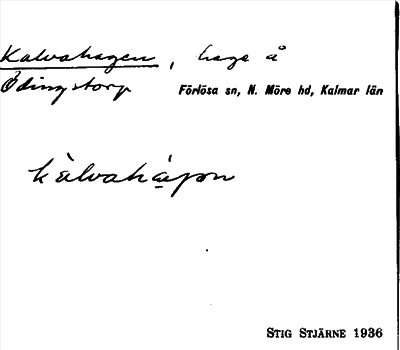 Kalvahagen, hage å
Ödingstorp Förlösa sn, N. Möre hd, Kalmar län
kàlvahàgon
STIG STJÄRNE 1936